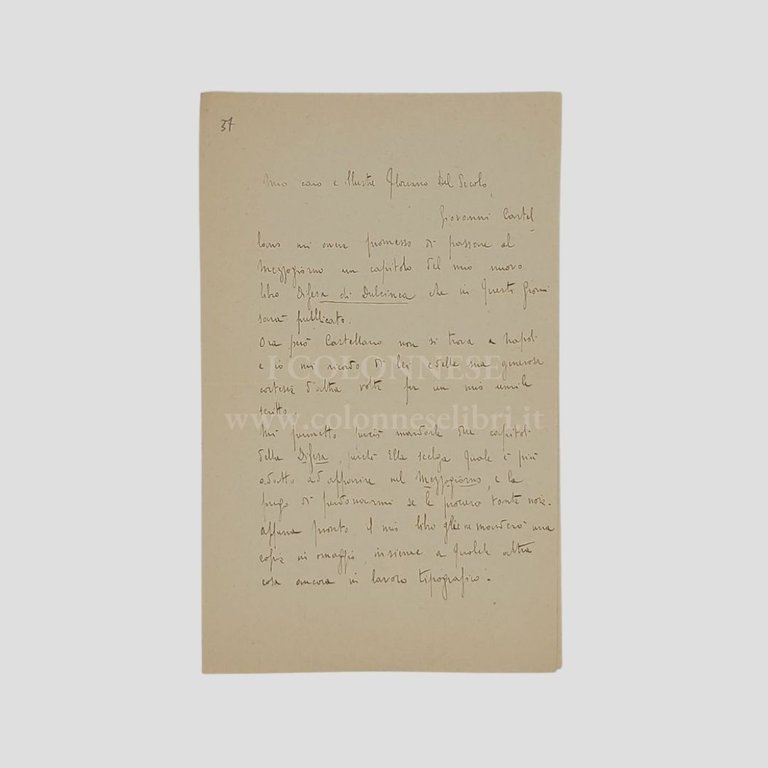 37
Mio caro e illustre Floriano Del Secolo,
Giovanni Castel_
lano mi aveva promesso di passare al
Mezzogiorno un capitolo del mio nuovo
libro Difesa di Dulcinea che in questi giorni
sarà pubblicato.
Ora però Castellano non si trova a Napoli
e io mi ricordo di lei e della sua generosa
cortesia d'altra volta per un mio umile
scritto.
Mi permetto perciò mandarle due capitoli
della Difesa, perché Ella scelga quale è più
adatto ad apparire nel Mezzogiorno, e la
prego di perdonarmi se le procuro tante noie.
Appena pronto il mio libro gliene manderò una
copia in omaggio, insieme a qualche altra
cosa ancora in lavoro tipografico.
I COLONNESE
www.colonneselibri.it